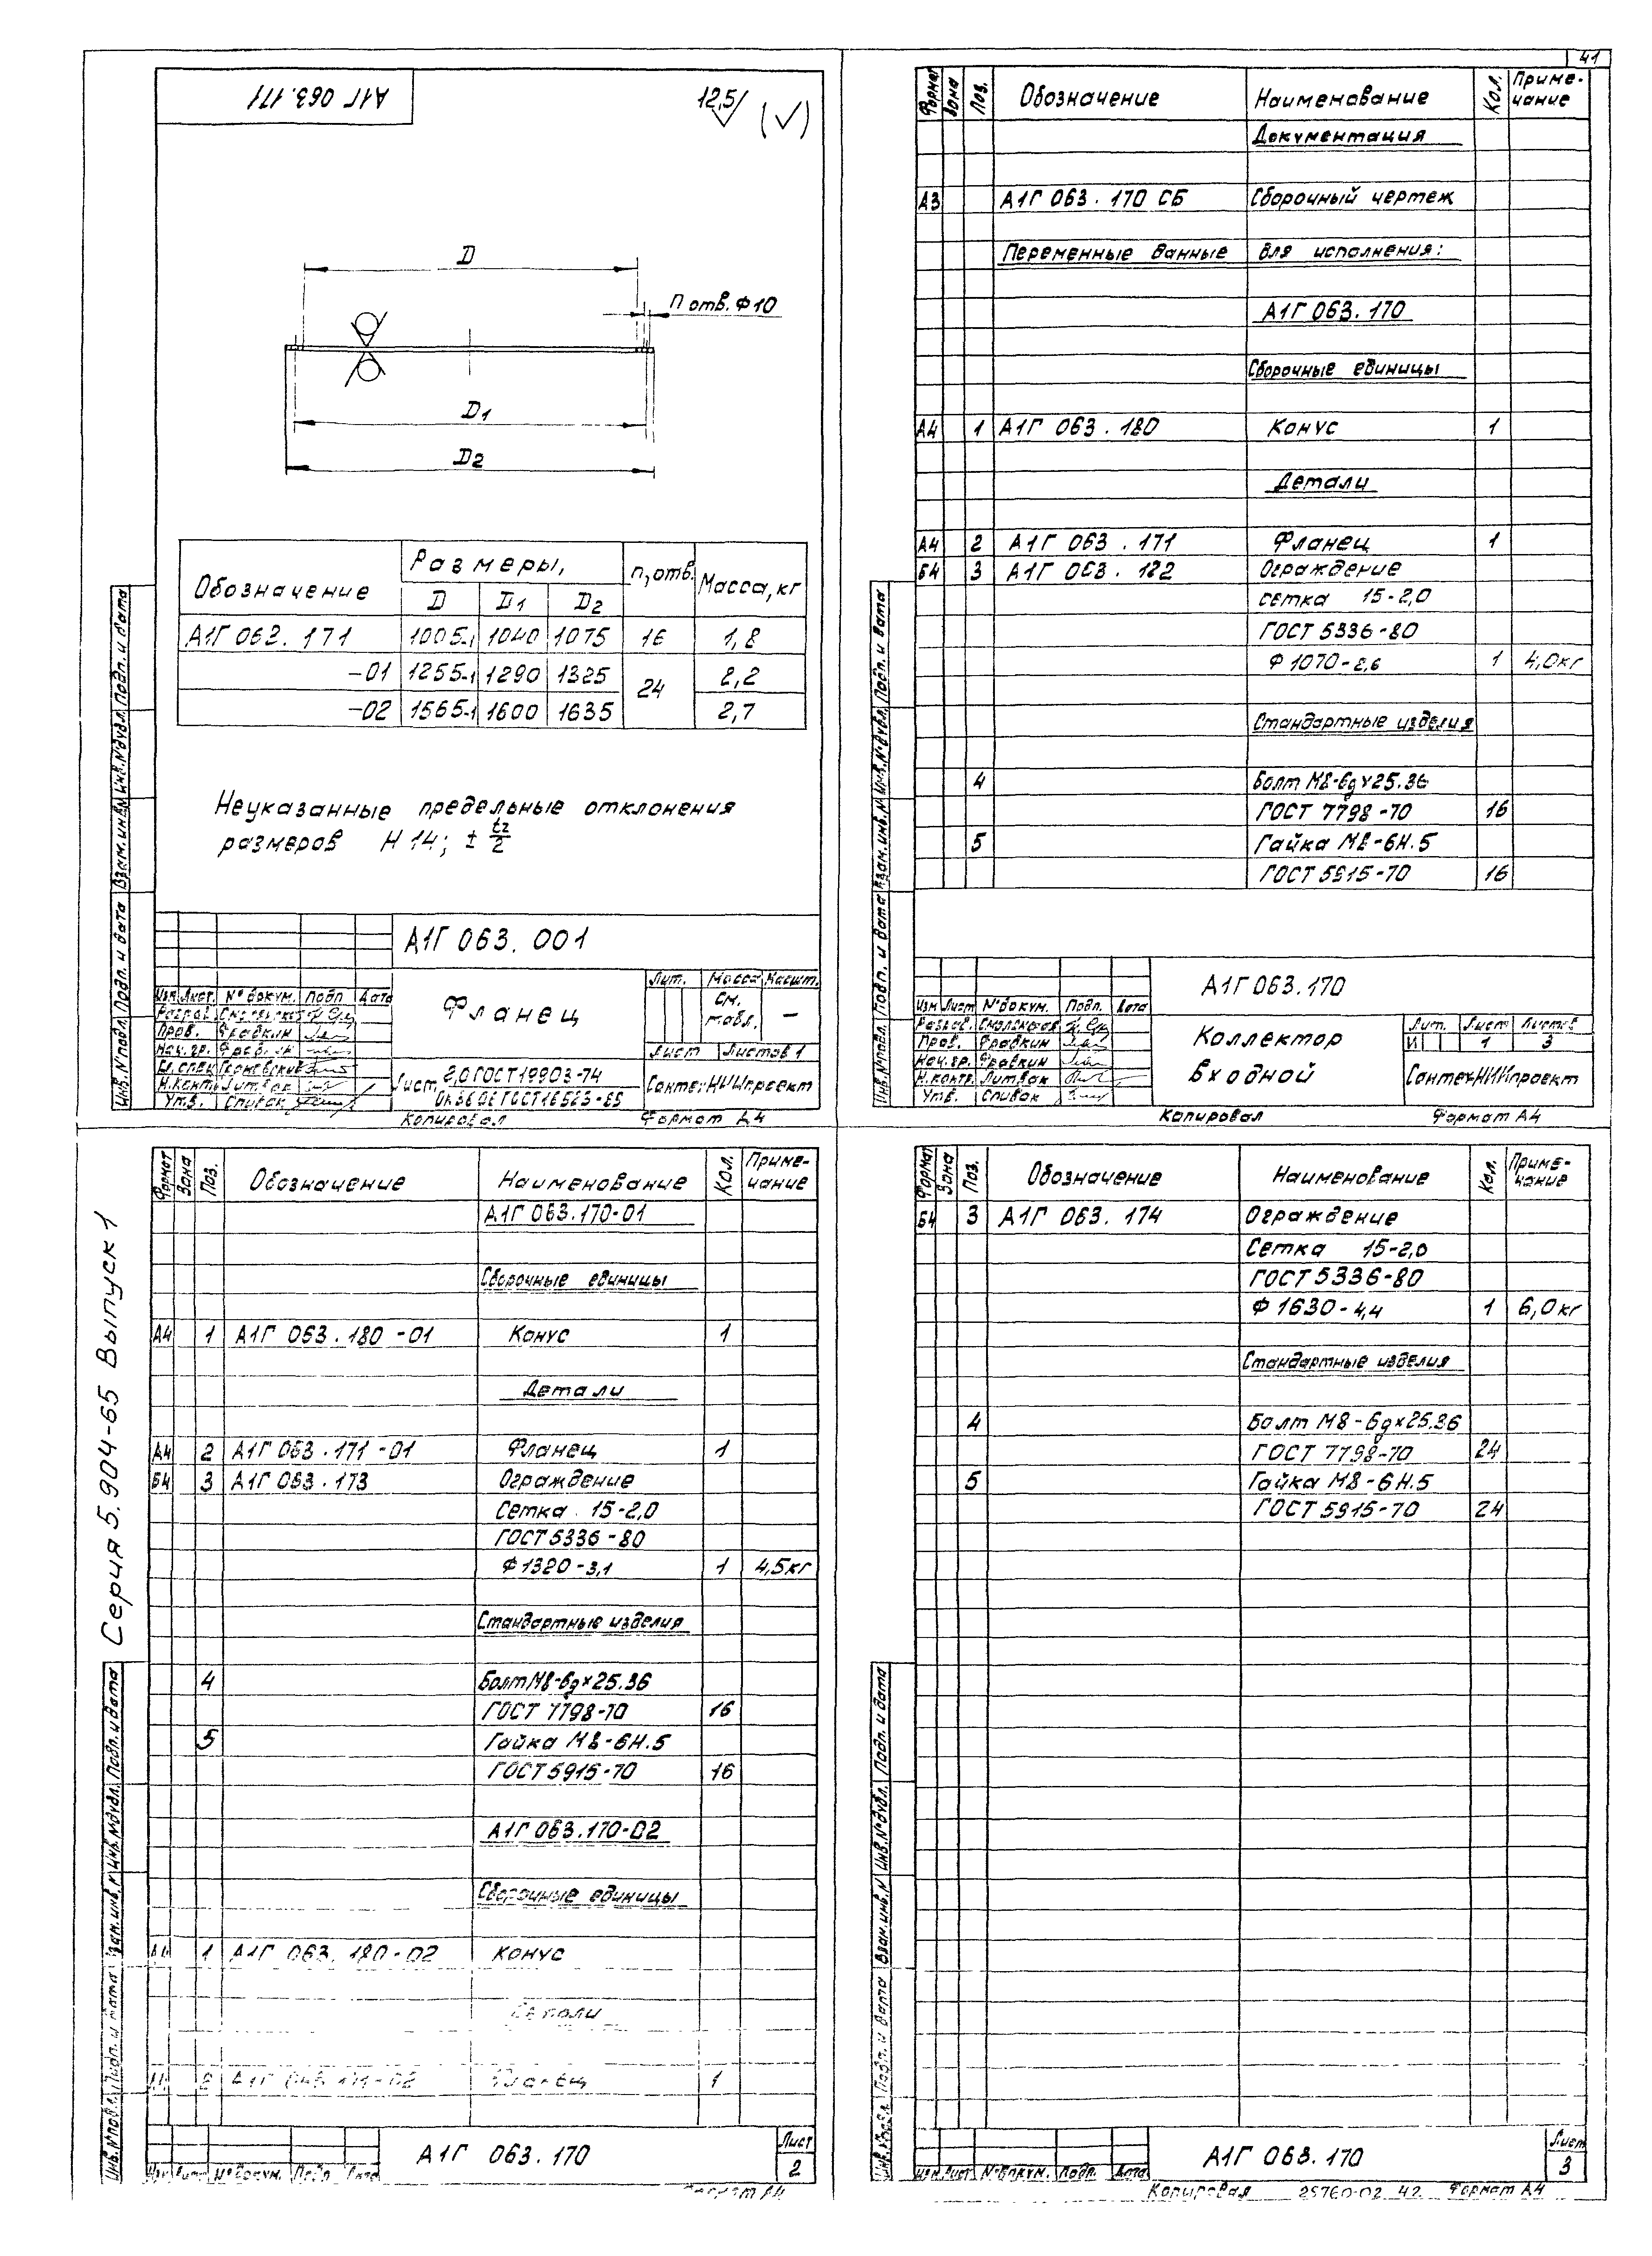 41
А1Г 063.171
12,5/ (√)
D
n отв. Ф10
D1
D2
Обозначение Размеры, n, отв. Масса, кг
D D1 D2
А1Г 063. 171 1005-1 1040 1075 16 1,8
-01 1255-1 1290 1325 24 2,2
-02 1565-1 1600 1635 2,7
Неуказанные предельные отклонения
размеров H14; ± t2/2
А1Г 063. 001
Лит. Масса Масшт.
Фланец
см. табл. –
Изм Лист. № докум. Подп Дата
Пров. Фрадкин
Нач. гр. Фрадкин
Н.контр Литвак
Утв. Спивак
Лист Листов 1
Лист 2,0 ГОСТ 19903-74
СантехНИИпроект
Копировал Формат А4
Инв. № подл. Подп. и дата Взам. инв. № Инв. № дубл. Подп. и дата
Формат Зона Поз. Обозначение Наименование Кол. Приме-
чание
Документация
А3 А1Г 063. 170 СБ Сборочный чертеж
Переменные данные для исполнения:
А1Г 063.170
Сборочные единицы
А4 1 А1Г 063. 180 Конус 1
Детали
А4 2 А1Г 063. 171 Фланец 1
Б4 3 А1Г 063. 172 Ограждение
сетка 15-2,0
ГОСТ 5336-80
Ф 1070-2,6 1 4,0кг
Стандартные изделия
4 Болт М8-6g×25.36
ГОСТ 7798-70 16
5 Гайка М8-6Н.5
ГОСТ 5915-70 16
Инв. № подл. Подп. и дата Взам. инв. № Инв. № дубл. Подп. и дата
А1Г 063.170
Изм Лист № докум. Подп. Дата
Пров. Фрадкин
Нач. гр. Фрадкин
Н.контр. Литвак
Утв. Спивак
Коллектор
входной
Лит. Лист Листов
И 1 3
СантехНИИпроект
Копировал Формат А4
Серия 5.904-65 Выпуск 1
Формат Зона Поз. Обозначение Наименование Кол. Приме-
чание
А1Г 063.170-01
Сборочные единицы
А4 1 А1Г 063. 180 -01 Конус 1
Детали
А4 2 А1Г 063. 171 -01 Фланец 1
Б4 3 А1Г 063. 173 Ограждение
Сетка 15-2,0
ГОСТ 5336-80
Ф 1320-3,1 1 4,5кг
Стандартные изделия
4 Болт М8-6g×25.36
ГОСТ 7798-70 16
5 Гайка М8-6Н.5
ГОСТ 5915-70 16
А1Г 063.170-02
Сборочные единицы
А4 1 А1Г 063. 180-02 конус
Детали
А4 2 А1Г 063 171-02 Фланец 1
Инв. № подл. Подп. и дата Взам. инв. № Инв. № дубл. Подп. и дата
Изм Лист № докум. Подп Дата
А1Г 063.170
Лист
2
Формат А4
Формат Зона Поз. Обозначение Наименование Кол. Приме-
чание
Б4 3 А1Г 063. 174 Ограждение
Сетка 15-2,0
ГОСТ 5336-80
Ф 1630-4,4 1 6,0кг
Стандартные изделия
4 Болт М8-6g×25.36
ГОСТ 7798-70 24
5 Гайка М8-6Н.5
ГОСТ 5915-70 24
Инв. № подл. Подп. и дата Взам. инв. № Инв. № дубл. Подп. и дата
Изм Лист № докум. Подп. Дата
А1Г 063.170
Лист
3
Копировал 25760-02 42 Формат А4